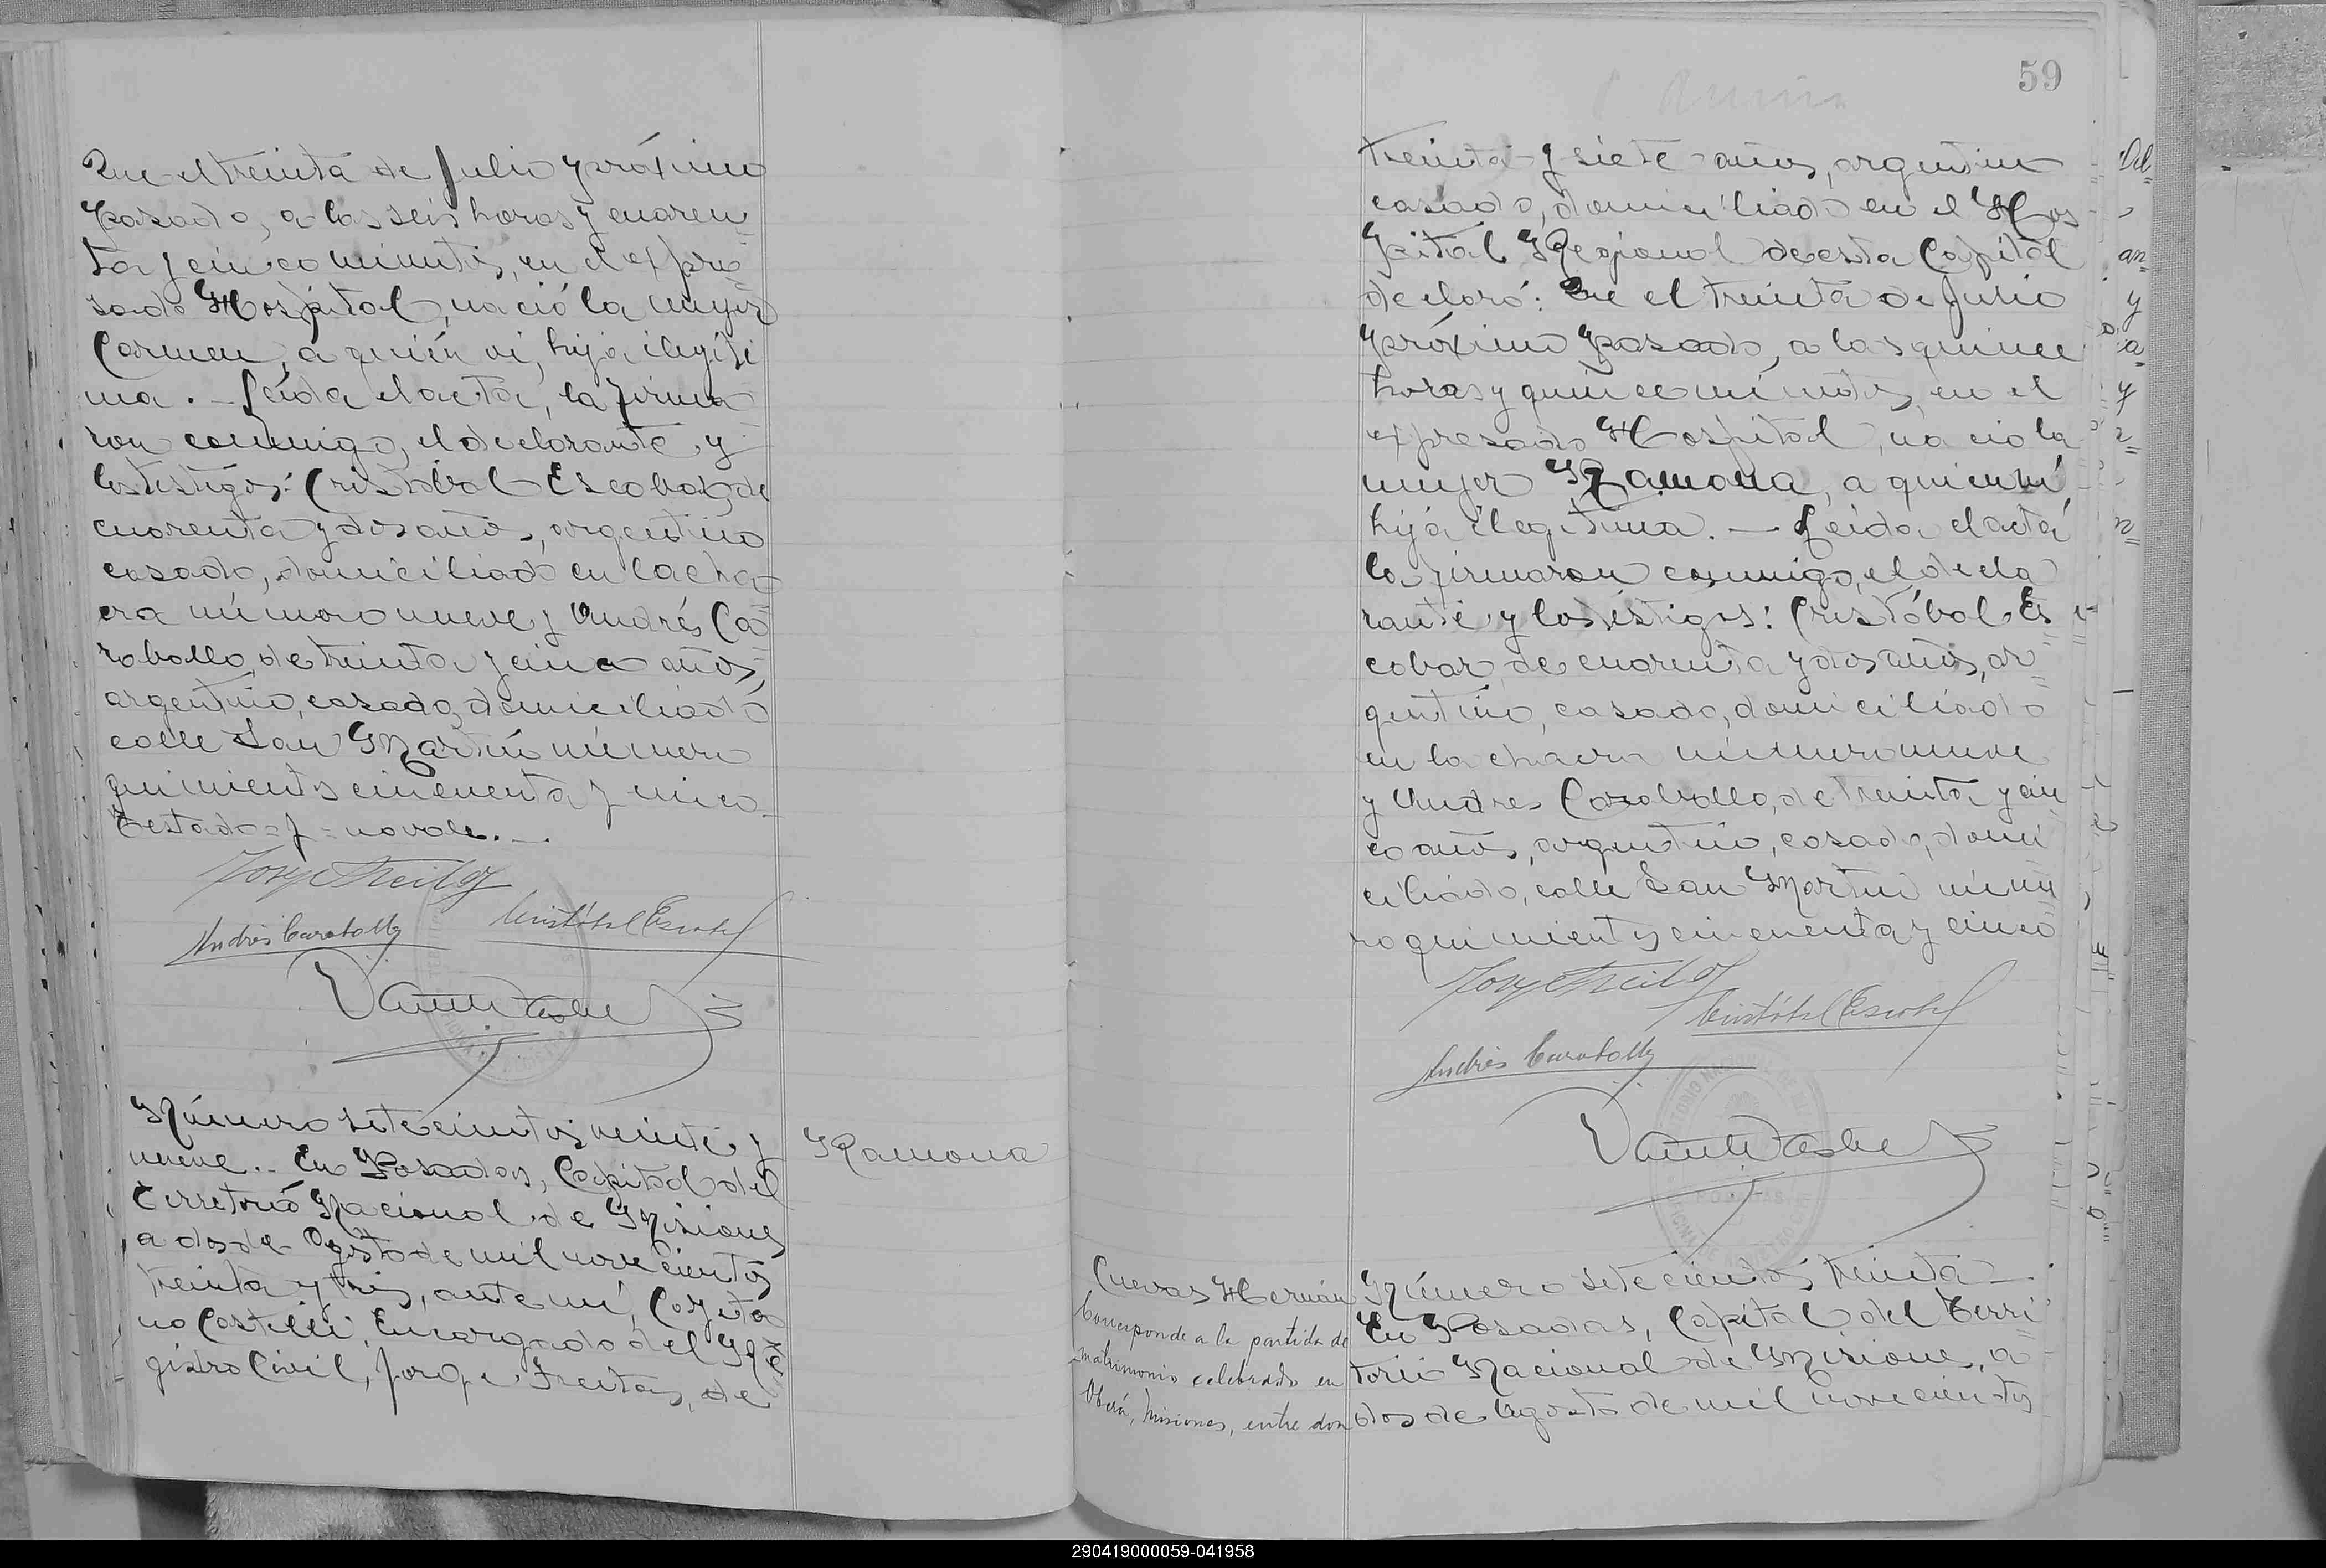 Que el treinta de Julio próximo
pasado, a las seis horas y cuaren=
ta y cinco minutos, en el expre=
sado Hospital, nació la mujer
Carmen, a quién vi, hija ilegíti
ma. - Leída el acta, la firma=
ron conmigo, el declarante y
los testigos: Cristóbal Escobar, de
cuarenta y dos años, argentino
casado, domiciliado en la cha=
cra número nueve y Andrés Ca=
raballo, de treinta y cinco años,
argentino, casado, domiciliado
calle San Martín número
quinientos cincuenta y cinco
Testado = y = no vale. -.
Jorge Freitas
Andrés Caraballo Cristóbal Escobar
Número setecientos veinte y
nueve. - En Posadas, Capital del
Territorio Nacional de Misiones
a dos de Agosto de mil novecientos
treinta y tres, ante mí, Cayeta
no Castelli, Encargado del Re
gistro Civil, Jorge Freitas, de
Ramona
59
treinta y siete años, argentino
casado, domiciliado en el Hos
pital Regional de esta Capital
declaró: Que el treinta de Julio
próximo pasado, a las quince
horas y quince minutos, en el
expresado Hospital, nació la
mujer Ramona, a quien vi,
hija ilegítima. - Leída el acta
la firmaron conmigo, el decla
rante y los testigos: Cristóbal Es
cobar, de cuarenta y dos años, ar
gentino, casado, domiciliado
en la chacra número nueve
y Andrés Caraballo, de treinta y cin
co años, argentino, casado, domi
ciliado, calle San Martín núme
ro quinientos cincuenta y cinco
Jorge Freitas
Cristóbal Escobar
Andrés Caraballo
Cuevas Hernán
Corresponde a la partida de
matrimonio celebrado en
Oberá, Misiones, entre don
Número setecientos treinta -.
En Posadas, Capital del Terri=
torio Nacional de Misiones, a
dos de Agosto de mil novecientos
290419000059-041958